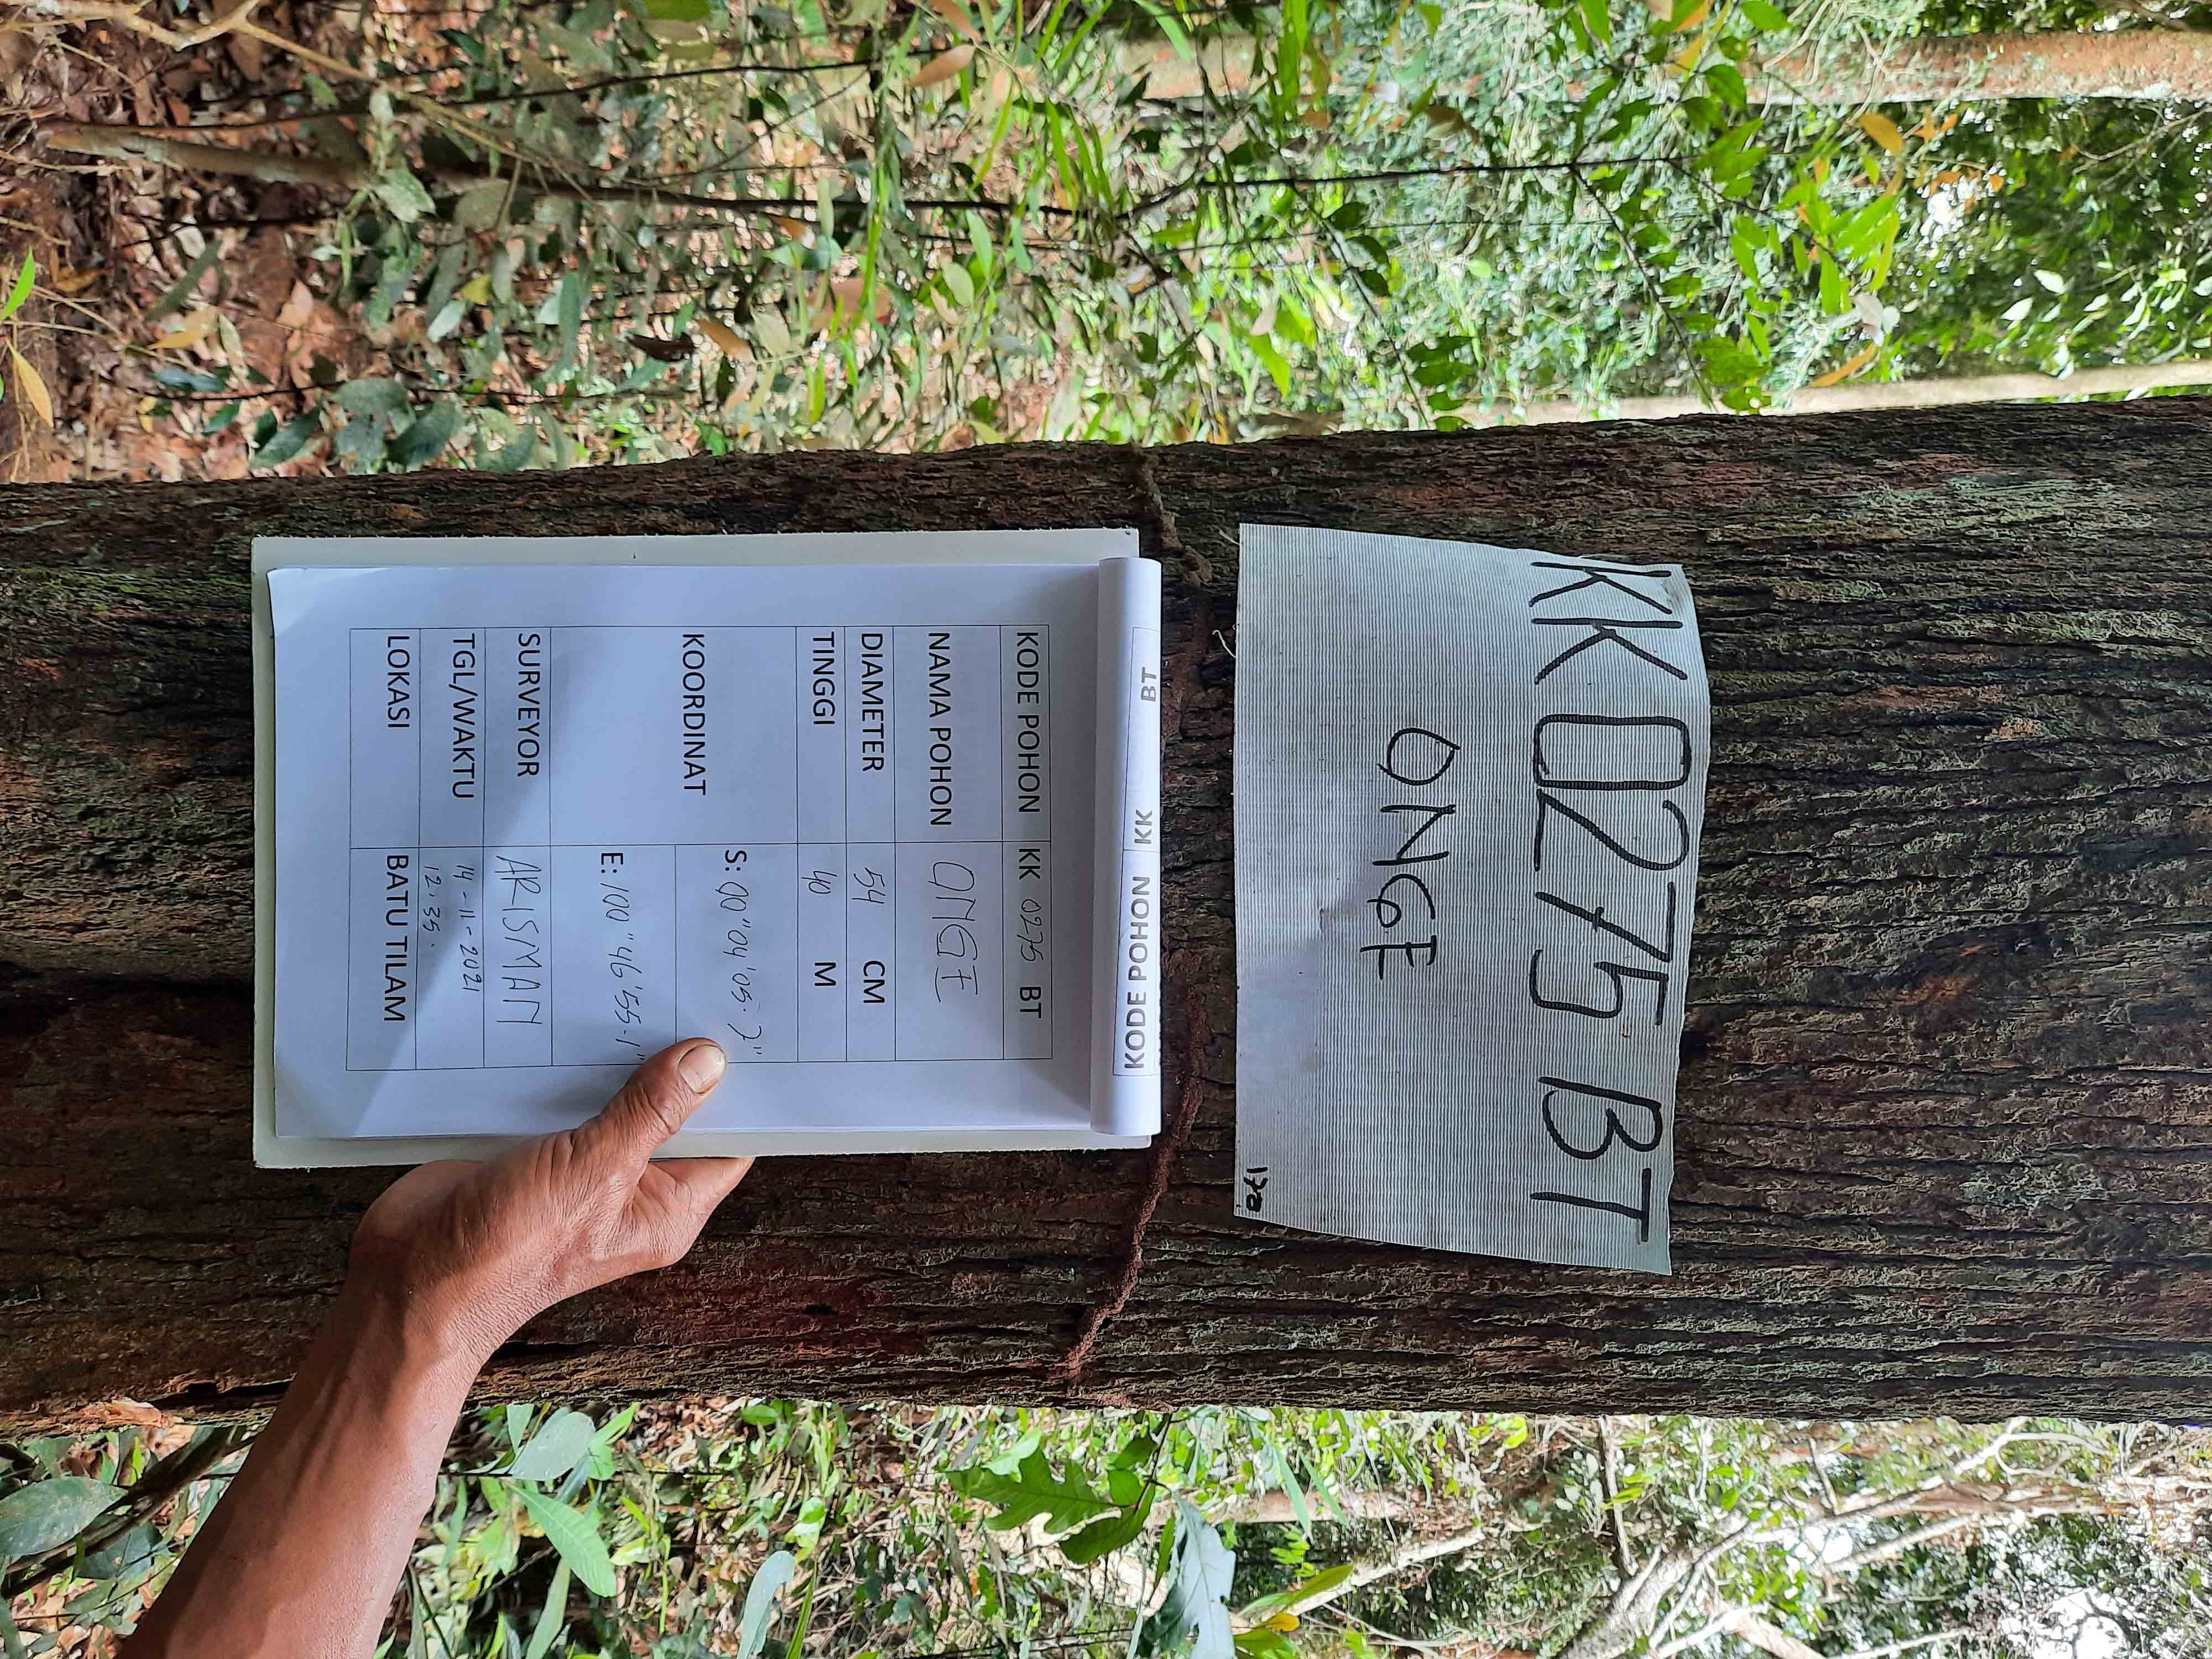 KK 0275 BT
ONGE
KODE POHON KK BT
KODE POHON KK 0275 BT
NAMA POHON ONGE
DIAMETER 54 CM
TINGGI 40 M
KOORDINAT S: 00"04'05.7"
E: 100"46'55.1"
SURVEYOR ARISMAN
TGL/WAKTU 14-11-2021
12.35.
LOKASI BATU TILAM